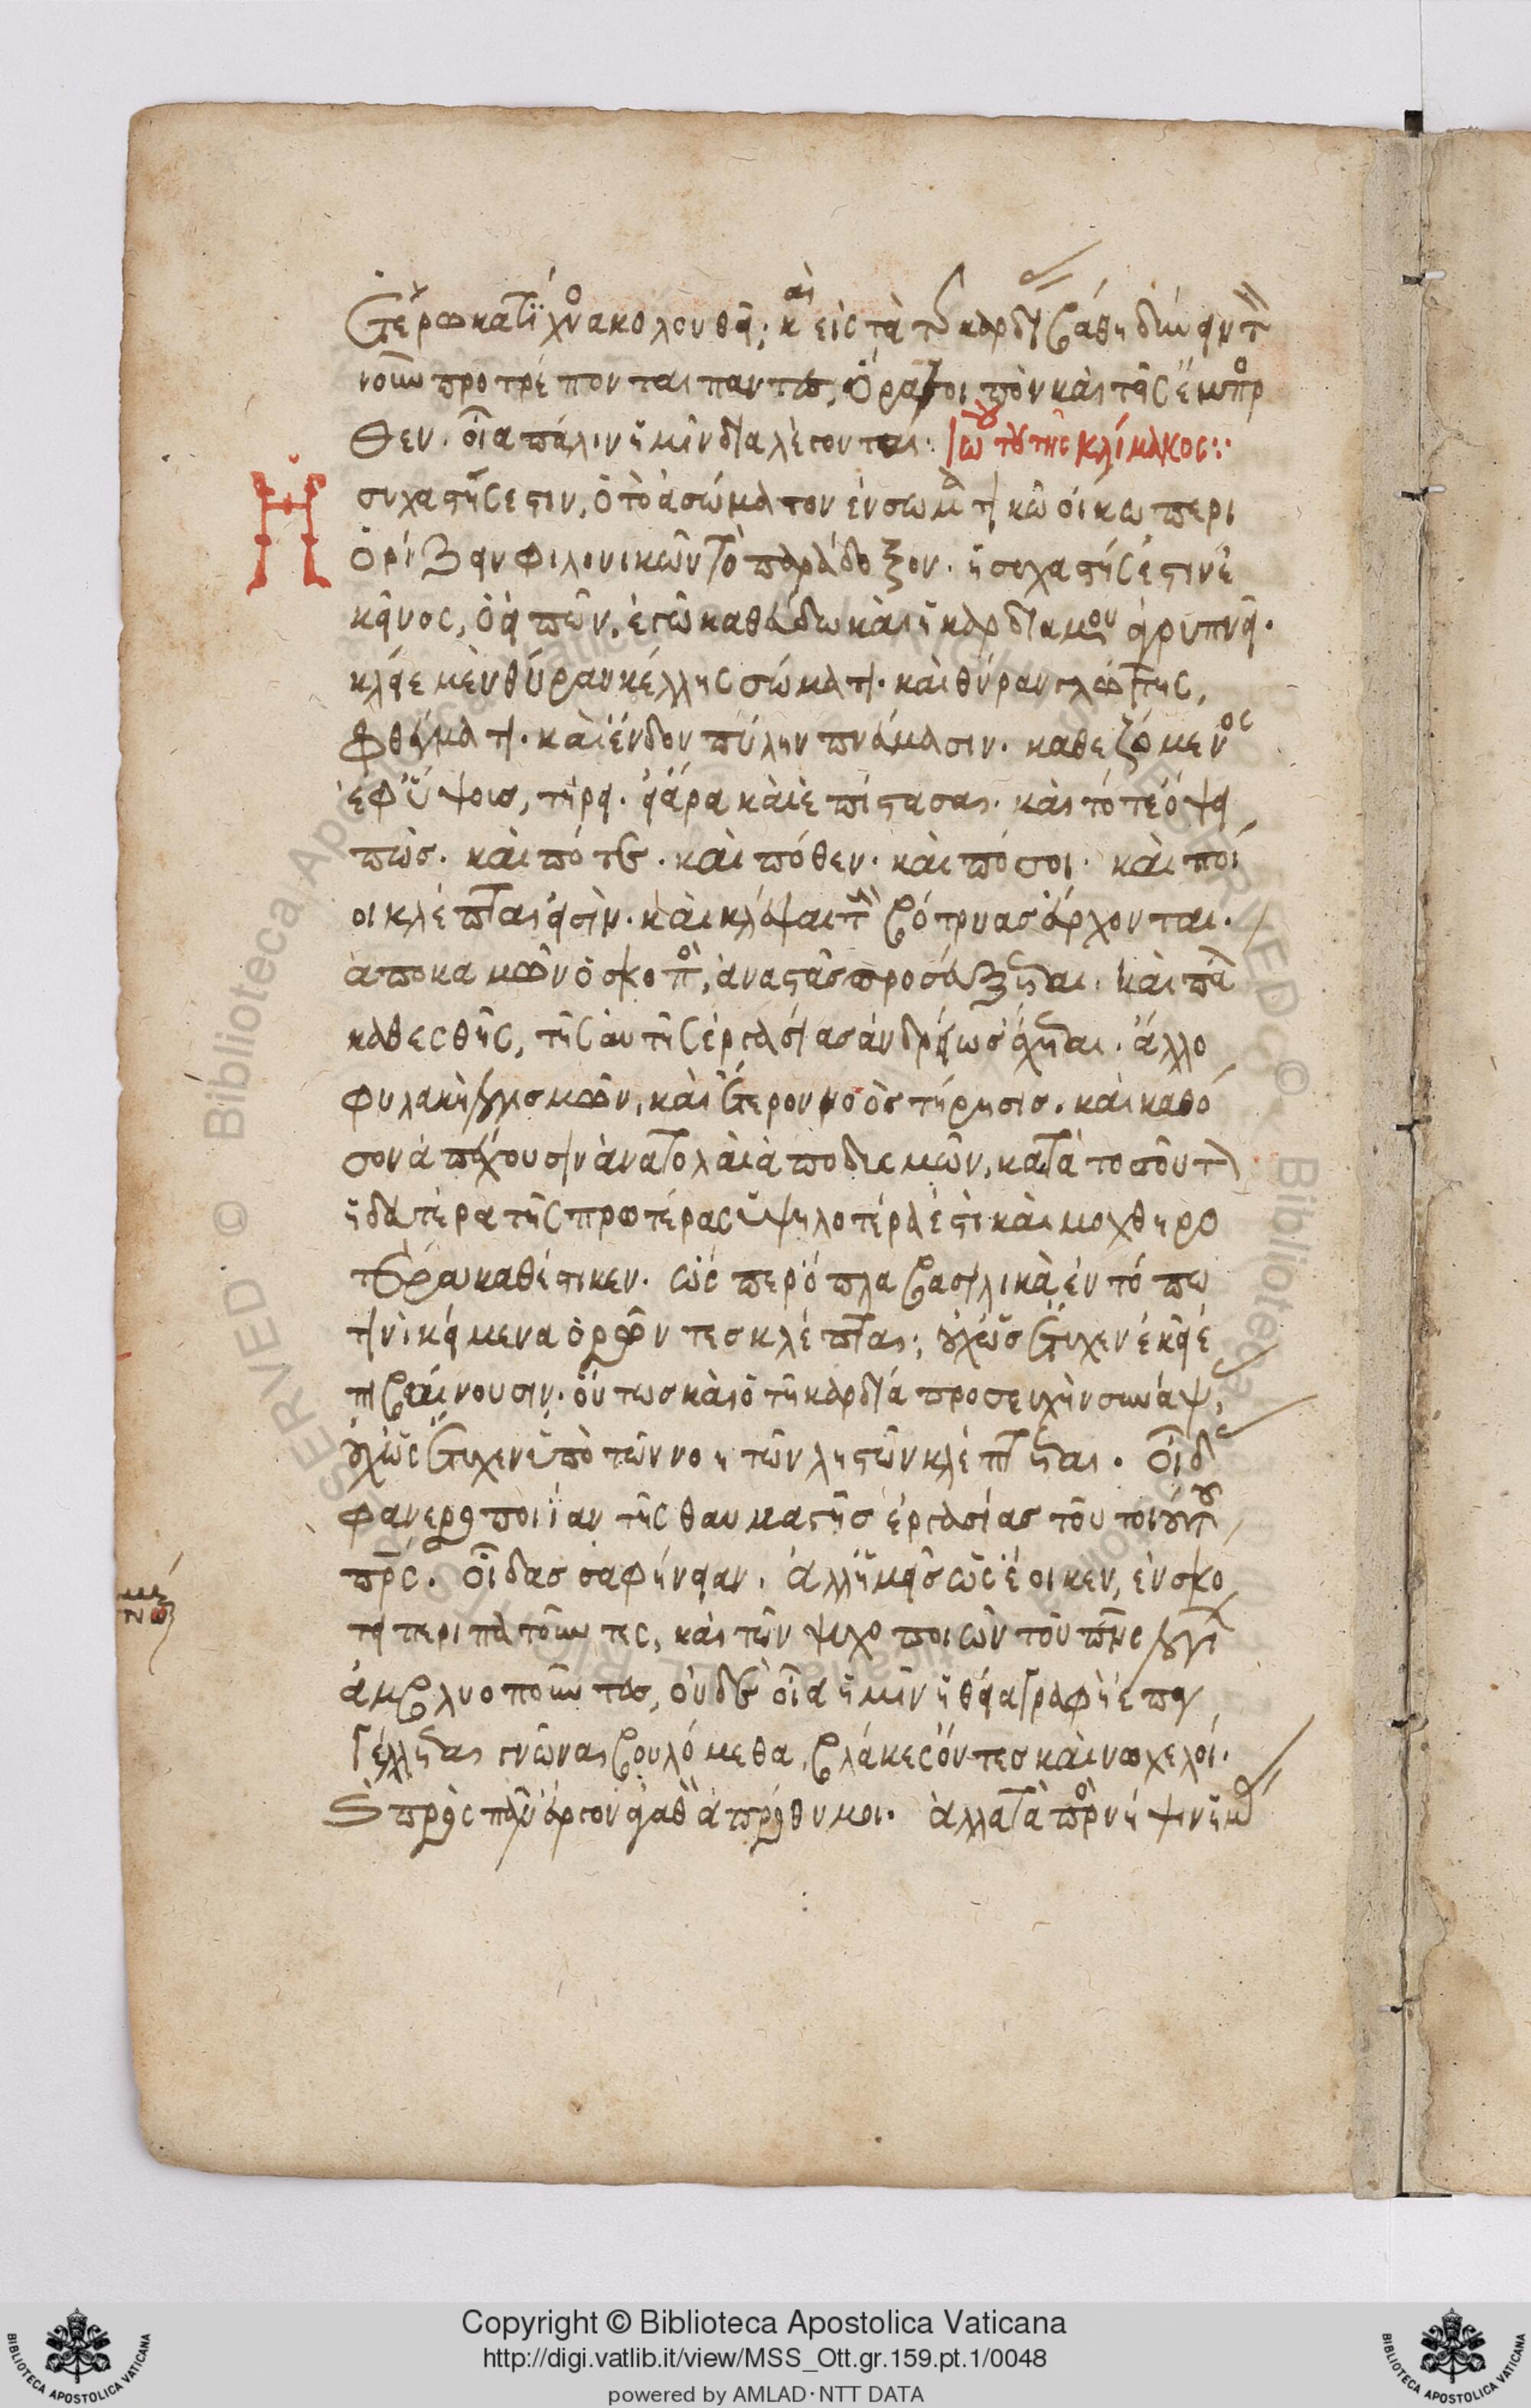 ἑτέρω κατ' ἴχνος ἀκολουθεῖ; καὶ εἰς τὰ τῆς καρδίας βάθη δύνειν τὸν
νοῦν προτρέπονται πάντες. Ὅρα τοι πὸν καὶ τῆς ἔμπροσ
θεν. οἷα πάλιν ἡμῖν διαλέγονται: Ἰω του τῆς κλίμακος:
Ἡ συχαστής ἐστιν, ὁ τὸ ἀσώματον ἐν σωματικῶ οἴκω περι
ορίζειν φιλονικῶν τὸ παράδοξον. ἡσυχαστής ἐστιν ἐ
κεῖνος, ὁ εἰπὼν, ἐγὼ καθεύδω καὶ ἡ καρδία μου ἀγρυπνεῖ.
κλεῖε μὲν θύραν κέλλης σώματι. καὶ θύραν γλώττης,
φθέγματι. καὶ ἔνδον πύλην πνεύμασιν. καθεζόμενος
ἐφ ὕψους, τήρει. εἰ ἄρα καὶ ἐπίστασαι. καὶ τότε ὄψει
πῶς. καὶ πότε. καὶ πόθεν. καὶ πόσοι. καὶ ποῖ
οι κλέπται εἰσὶν. καὶ κλέψαι τοὺς βότρυας ἔρχονται.
ἀποκαμὼν ὁ σκοπὸς, ἀναστὰς προσεύξεται. καὶ πάλιν
καθεσθεὶς, τῆς αὐτῆς ἐργασίας ἀνδρείως ἔχεται. ἄλλο
φυλακὴ λογισμῶν, καὶ ἕτερον νοὸς τήρησις. καὶ καθό
σον ἀπέχουσιν ἀνατολαὶ ἀπὸ δυσμῶν, κατὰ τοσοῦτον
ἡ δευτέρα τῆς προτέρας ὑψηλοτέρα ἐστὶ καὶ μοχθηρο
τέρα καθέστηκεν. ὥσπερ ὅπλα βασιλικὰ ἐν τόπω
τινὶ κείμενα ὁρῶντες κλέπται; οὐχ ὡς ἔτυχεν ἐκεῖ ἐ
πιβαίνουσιν. οὕτως καὶ ὁ τῆ καρδία προσευχὴν συνάψας,
οὐχ ὡς ἔτυχεν ὑπὸ τῶν νοητῶν ληστῶν κλέπτεται. Οἶδας
φανεροποιΐαν τῆς θαυμαστῆς ἐργασίας τοῦ τοιούτου
πρς. Οἶδας σαφήνειαν. ἀλλ' ἡμεῖς ὡς ἔοικεν, ἐν σκό
τει περιπατοῦντες, καὶ τῶν ψυχοποιῶν τοῦ πνς λόγια
ἀμβλυοποῦντες, οὐδὲ οἷα ἡμῖν ἡ θεία γραφὴ ἐπαγ
γέλλεται γνῶναι βουλόμεθα, βλάκες ὄντες καὶ νωχελοί.
πρὸς πᾶν ἔργον ἀγαθὸν ἀπρόθυμοι. ἀλλὰ τὰ πρὸς νῆψιν ἡμῶν